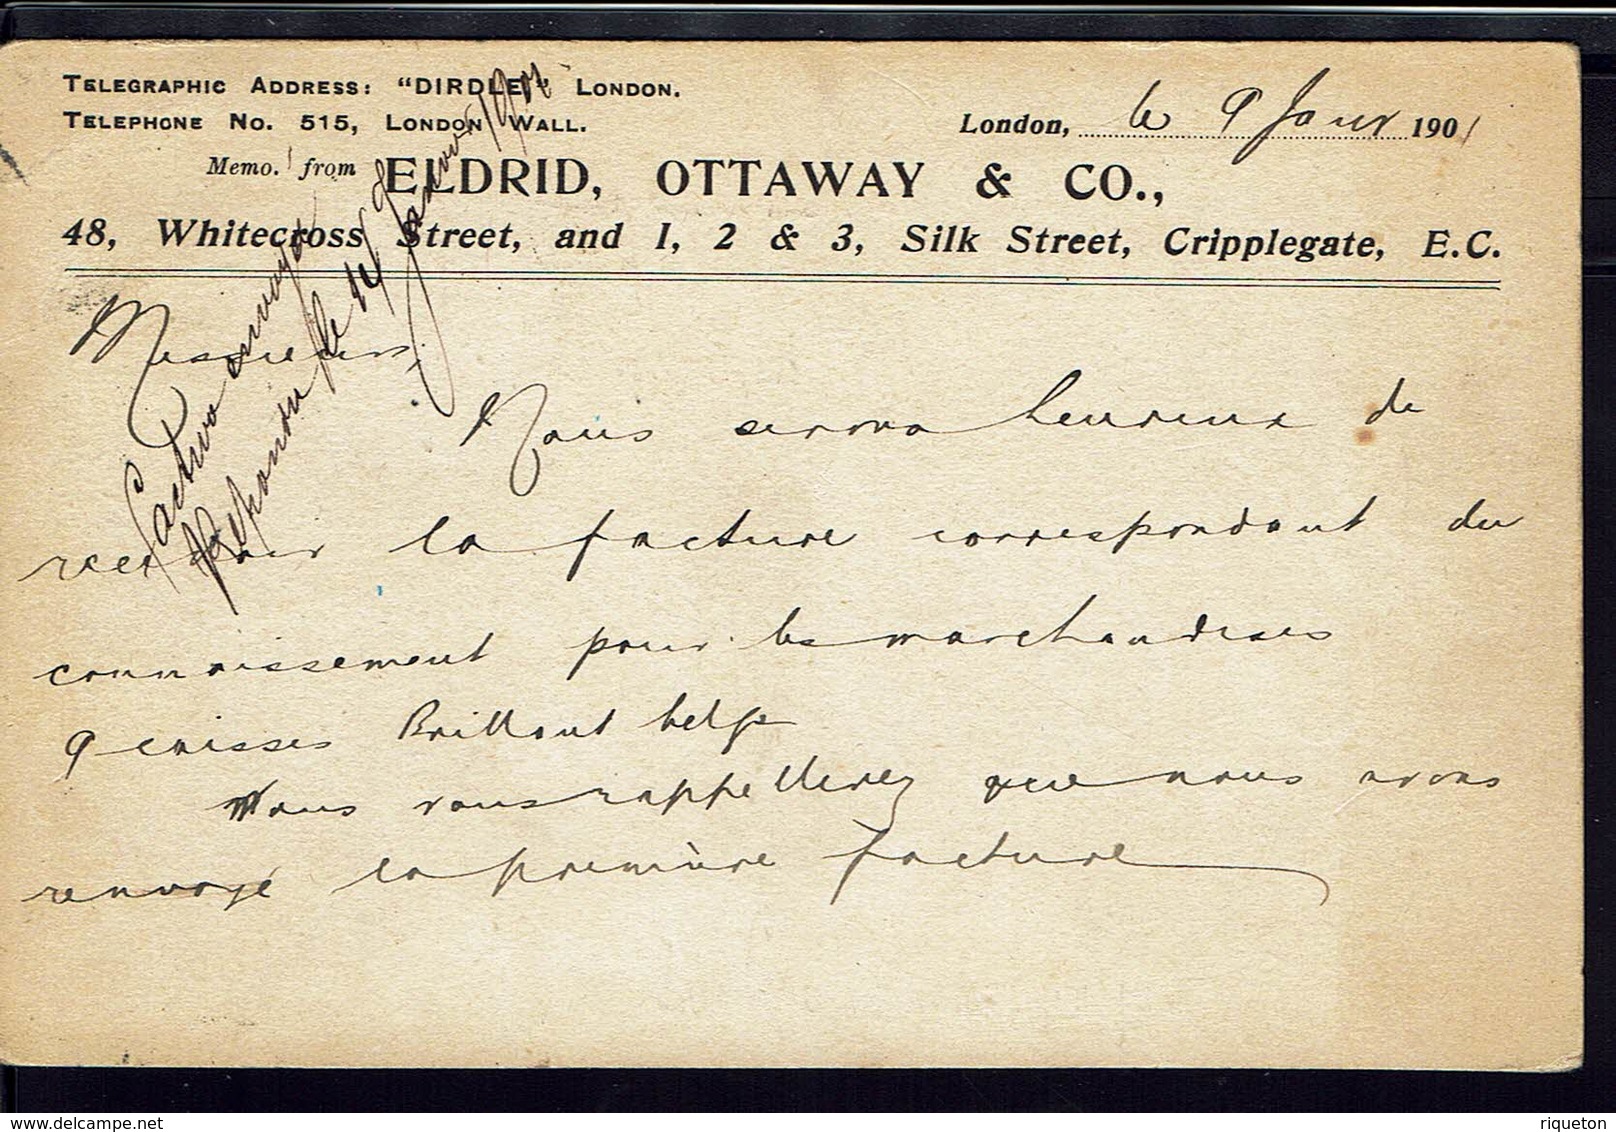 TELEGRAPHIC ADDRESS: "DIRDLE," LONDON.
TELEPHONE NO. 515, LONDON WALL.
London, le 9 Janr 1901
Memo. from ELDRID, OTTAWAY & CO.,
48, Whitecross Street, and 1, 2 & 3, Silk Street, Cripplegate, E.C.
Factura envoyée
Repondu le 14 Janvier 1901
Messieurs,
Nous serons heureux de
recevoir la facture correspondant du
connaissement pour les marchandises
9 caisses Brillant belge
Vous vous rappellerez que nous avons
renvoyé la première facture
riqueton